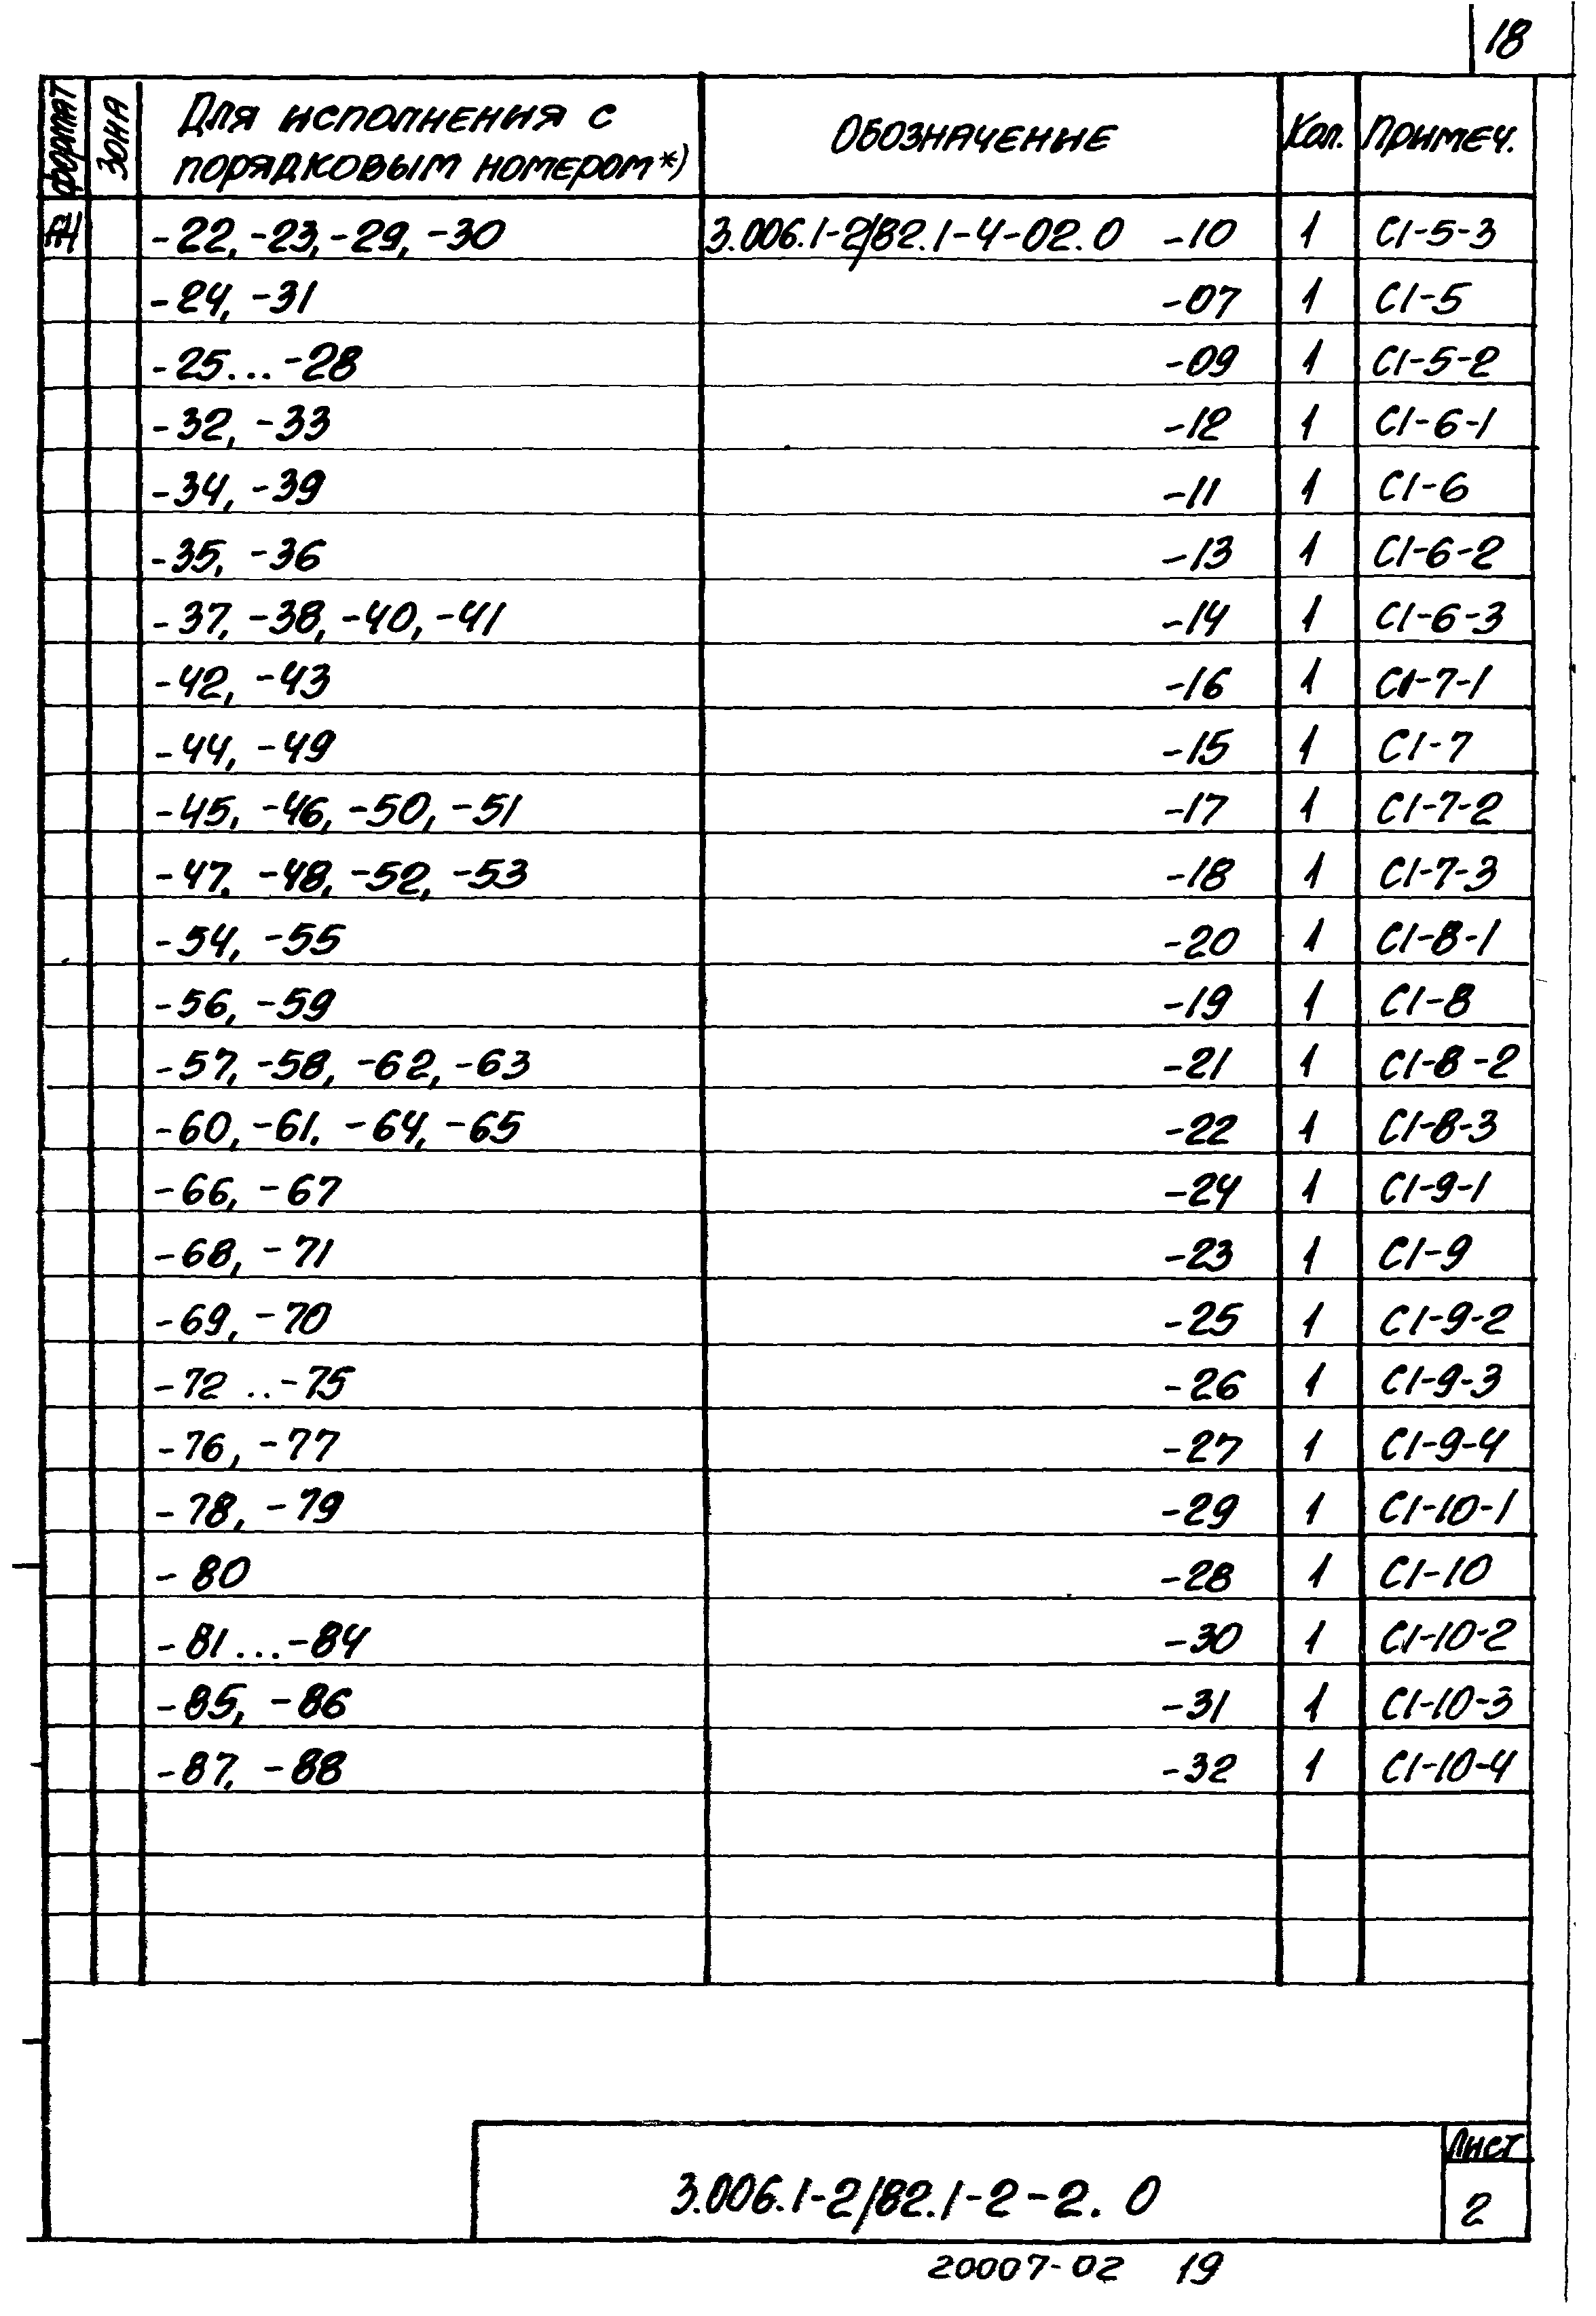 18
Формат Зона Для исполнения с порядковым номером*) Обозначение Кол. Примеч.
А4 -22, -23, -29, -30 3.006.1-2/82.1-4-02.0 -10 1 С1-5-3
-24, -31 -07 1 С1-5
-25...-28 -09 1 С1-5-2
-32, -33 -12 1 С1-6-1
-34, -39 -11 1 С1-6
-35, -36 -13 1 С1-6-2
-37, -38, -40, -41 -14 1 С1-6-3
-42, -43 -16 1 С1-7-1
-44, -49 -15 1 С1-7
-45, -46, -50, -51 -17 1 С1-7-2
-47, -48, -52, -53 -18 1 С1-7-3
-54, -55 -20 1 С1-8-1
-56, -59 -19 1 С1-8
-57, -58, -62, -63 -21 1 С1-8-2
-60, -61, -64, -65 -22 1 С1-8-3
-66, -67 -24 1 С1-9-1
-68, -71 -23 1 С1-9
-69, -70 -25 1 С1-9-2
-72 ..-75 -26 1 С1-9-3
-76, -77 -27 1 С1-9-4
-78, -79 -29 1 С1-10-1
-80 -28 1 С1-10
-81...-84 -30 1 С1-10-2
-85, -86 -31 1 С1-10-3
-87, -88 -32 1 С1-10-4
3.006.1-2/82.1-2-2.0
Лист
2
20007-02 19